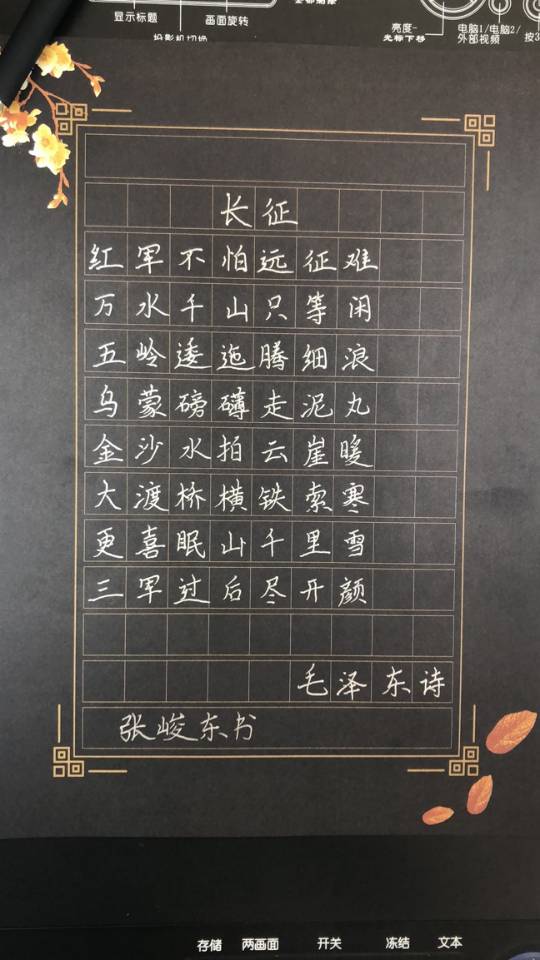 显示标题
画面旋转
投影机切换
亮度-
光标下移
电脑1/电脑2/
外部视频
按3
长征
红军不怕远征难
万水千山只等闲
五岭逶迤腾细浪
乌蒙磅礴走泥丸
金沙水拍云崖暖
大渡桥横铁索寒
更喜眠山千里雪
三军过后尽开颜
毛泽东诗
张峻东书
存储
两画面
开关
冻结
文本